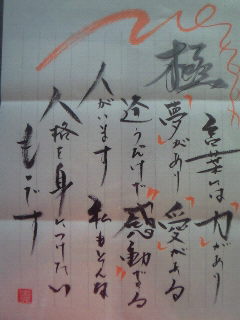 極
言葉には「力」があり
「夢」があり「愛」がある
逢うだけで"感動"する
人がいます 私もそんな
人格を身につけたい
もので す